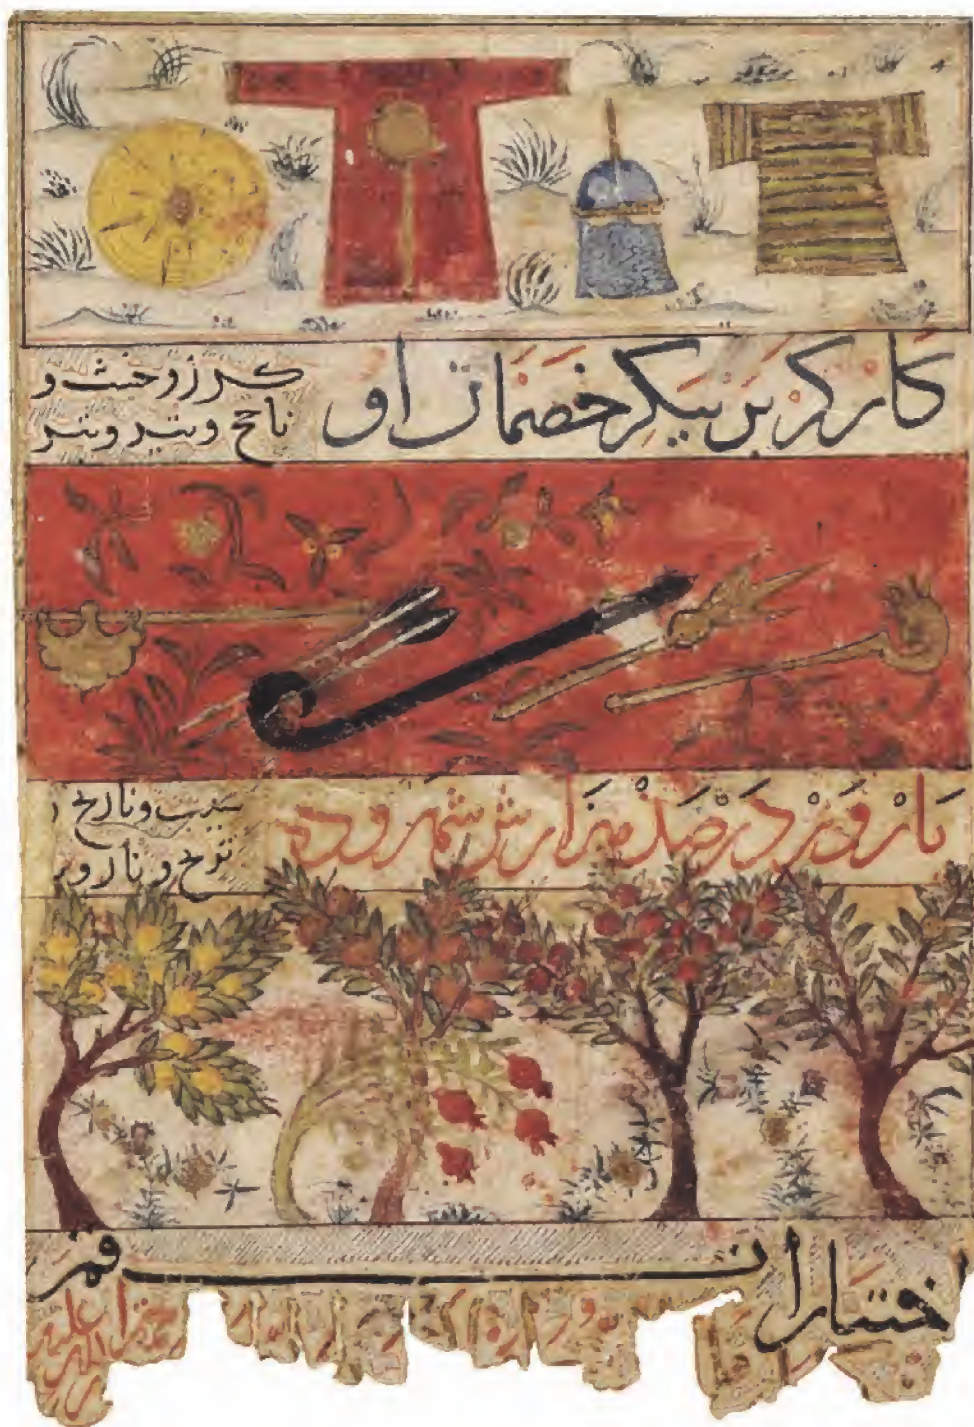 کارکر بر پیکر خصمان او
کرز و خشت و
ناچخ و تیر و تبر
بارور در صد هزارش شهر و ده
سیب و نارنج و
ترنج و نار و
اختیارات قمر